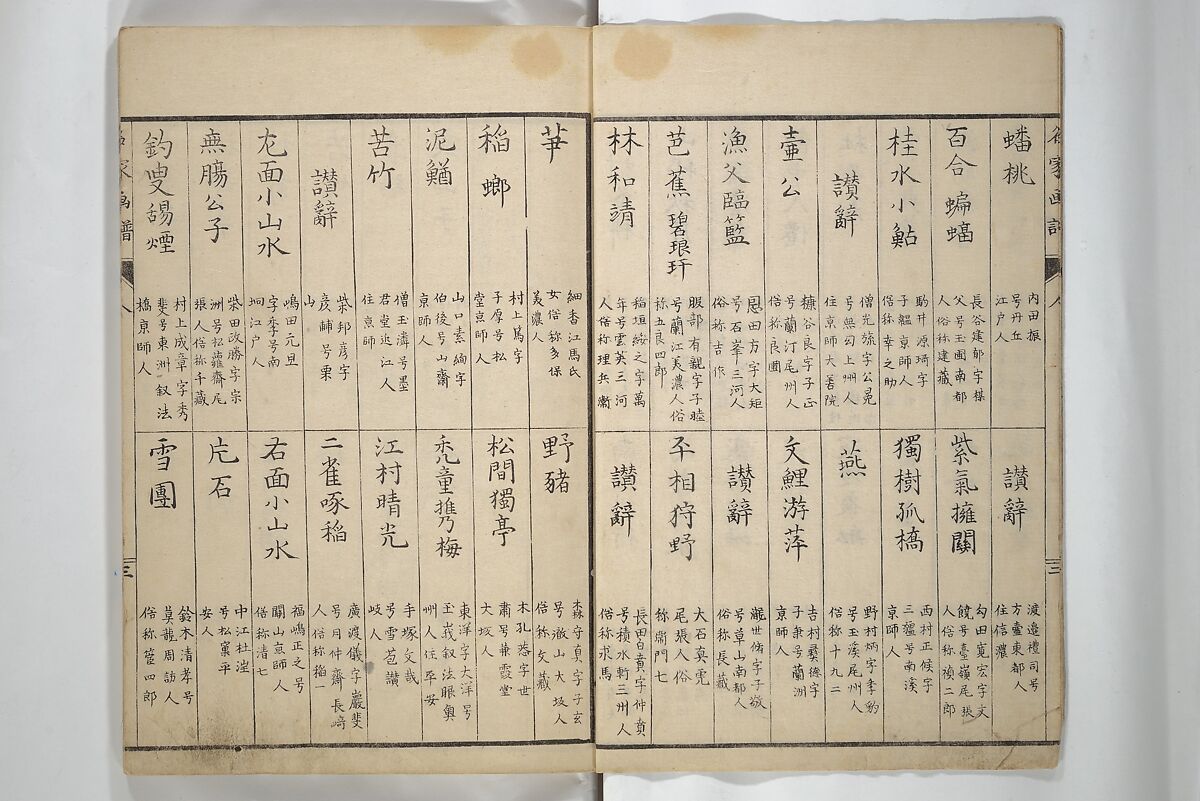 蟠桃
内田振
号丹丘
江戸人
百合 蝙蝠
長谷建郁字椹
父号玉圃南都
人俗称建蔵
桂水小鮎
駒井源琦字
子韞京師人
俗称幸之助
讃辭
僧光號字公冕
号無勾上州人
住京師大善院
壷公
糠谷良字子正
号蘭汀尾州人
俗称良圃
漁父臨籃
恩田方字大矩
号石峯三河人
俗称吉作
芭蕉 碧琅玕
服部有親字子睦
号蘭江美濃人俗
称五良四郎
林和靖
稲垣綏之字萬
年号雲英三河
人俗称理兵衞
讃辭
渡邉禮司号
方壷東都人
住信濃
紫氣擁關
勾田寛宏字文
饒号臺嶺尾張
人俗称禎二郎
獨樹孤橋
西村正候字
三韞号南溪
燕
野村炳字季豹
号玉溪尾州人
俗称十九二
文鯉游萍
吉村孝德字
子兼号蘭洲
京師人
讃辭
瀧世脩字子敬
号草山南都人
俗称長蔵
平相狩野
大石真虎
尾張人俗
称衞門七
讃辭
長田白賁字仲賁
号積水斬三州人
俗称求馬
芛
細香江馬氏
女俗称多保
美濃人
稲 螂
村上篤字
子厚号松
堂京師人
泥鰌
山口素絢字
伯後号山齋
京師人
苦竹
僧玉潾号墨
君堂近江人
住京師
讃辭
柴邦彦字
彦輔号栗
山
左面小山水
嶋田元旦
字季号南
坰江戸人
無膓公子
柴田政勝字宗
洲号松蘿齋尾
張人俗称千蔵
釣叟鍚煙
村上成章字秀
斐号東洲叙法
橋京師人
野豬
森守真字子玄
号澈山大坂人
俗称文蔵
松間獨亭
木孔恭字世
肅号兼霞堂
大坂人
禿童推乃梅
東洋字大洋号
玉峩叙法眼奥
州人住平安
江村晴光
手塚文哉
号雪苞讃
岐人
二雀啄稲
廣渡儀字巖斐
号月仲齋長﨑
人俗称稲一
右面小山水
福嶋正之号
關山京師人
俗称清七
片石
中江杜澂
号松窠平
安人
雪團
鈴木清孝号
莫龍周防人
俗称笹四郎